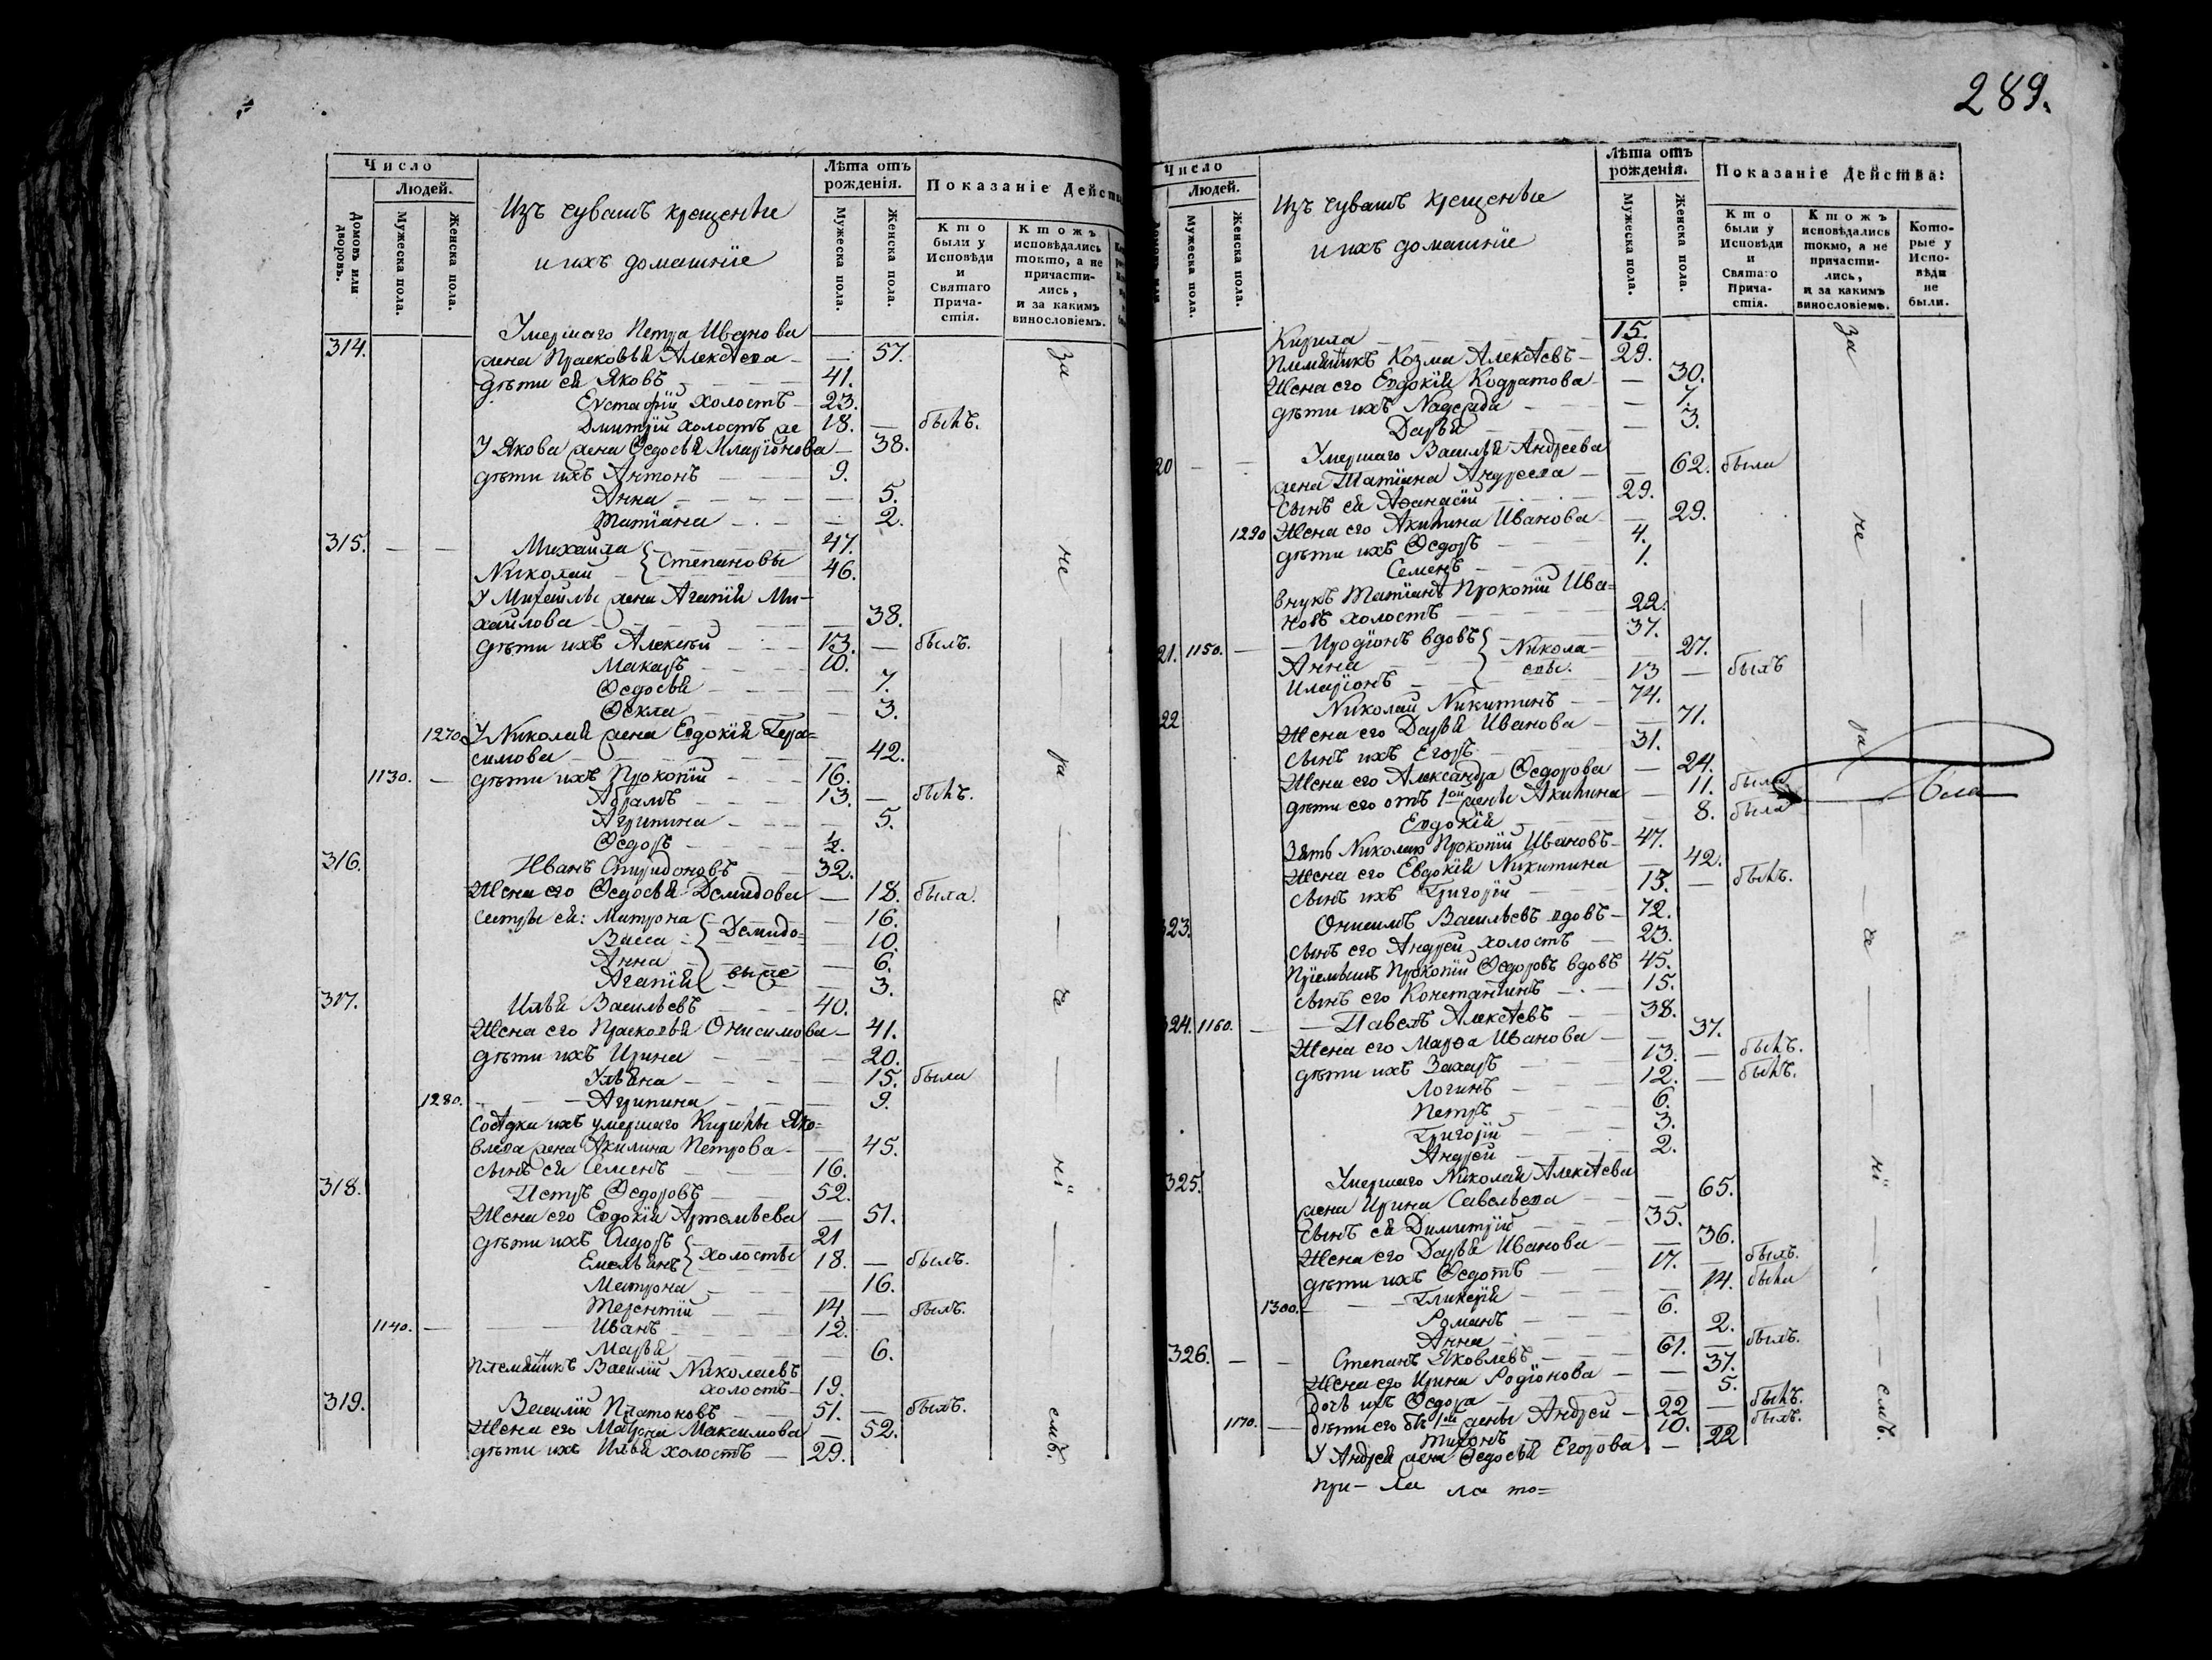 289.
Число
Людей.
Домовъ или дворовъ.
Мужеска пола.
Женска пола.
Изъ чувашъ крещеные
и ихъ домашніе
Лѣта отъ рожденія.
Мужеска пола.
Женска пола.
Показаніе Дейст
Кто были у Исповѣди и Святаго Причастія.
Ктожъ исповѣдались токмо, а не причастились, и за какимъ винословіемъ.
Умершаго Петра Иванова
314. жена Прасковья Алексѣева — 57.
дѣти ея Яковъ 41.
Евстафій холостъ 23.
Дмитрій холостъ же 18. — былъ.
У Якова жена Ѳедосья Иларіонова — 38.
дѣти ихъ Антонъ 9.
Анна — 5.
Татіана — 2.
315. — — Михаила 47.
Николай } Степановы 46.
У Михайлы жена Агапія Ми-
хайлова — 38.
дѣти ихъ Алексѣй 13. — былъ.
Макаръ 10.
Ѳедосья — 7.
Ѳекла — 3.
1270. У Николая жена Евдокія Гера=
симова — 42.
1130. — дѣти ихъ Прокопій 16.
Абрамъ 13. — былъ.
Агрипина — 5.
Ѳедоръ ½.
316. Иванъ Спиридоновъ 32.
Жена его Ѳедосья Демидова — 18. была.
Сестры ея: Матрона — 16.
Васса } Демидо= — 10.
Анна — 6.
Агапія } вы же — 3.
317. Илья Васильевъ 40.
Жена его Прасковья Онисимова — 41.
дѣти ихъ Ирина — 20.
Ульяна — 15. была
1280. — Агрипина — 9.
Сосѣдки ихъ умершаго Кирилы Яко=
влева жена Акилина Петрова — 45.
сынъ ея Семенъ 16.
318. Петръ Ѳедоровъ 52.
Жена его Евдокія Артемьева — 51.
дѣти ихъ Сидоръ 21
Емельянъ } холосты 18. — былъ.
Матрона — 16.
Терентій 14. — былъ.
1140. — Иванъ 12.
Марья — 6.
Племянникъ Василій Николаевъ
холостъ 19.
319. Василій Платоновъ 51. — былъ.
Жена его Матрона Максимова — 52.
дѣти ихъ Илья холостъ 29.
за не ра че ні емъ.
Число
Людей.
Мужеска пола.
Женска пола.
Изъ чувашъ крещеные
и ихъ домашніе
Лѣта отъ рожденія.
Мужеска пола.
Женска пола.
Показаніе Действа:
Кто были у Исповѣди и Святаго Причастія.
Ктожъ исповѣдались токмо, а не причастились, и за какимъ винословіемъ.
Которые у Исповѣди не были.
Кирила 15.
Племянникъ Козма Алексѣевъ 29.
Жена его Евдокія Кодратова — 30.
дѣти ихъ Надежда — 7.
Дарья — 3.
Умершаго Василья Андреева
20 — — жена Татіана Андреева — 62. была
Сынъ ея Аѳанасій 29.
1290 Жена его Акилина Иванова — 29.
дѣти ихъ Ѳедоръ 4.
Семенъ 1.
внукъ Татіанѣ Прокопій Ива=
новъ холостъ 22.
21. 1150. — Иродіонъ вдовъ 37.
Анна } Никола- 27.
Иларіонъ } евы. 13 — былъ
22 Николай Никитинъ 74.
Жена его Дарья Иванова — 71.
сынъ ихъ Егоръ 31.
Жена его Александра Ѳедорова — 24.
дѣти его отъ 1ой жены Акилина — 11. была
Евдокія — 8. была
Зять Николаю Прокопій Ивановъ 47.
Жена его Евдокія Никитина — 42.
сынъ ихъ Григорій 13. — былъ.
323. Онисимъ Васильевъ вдовъ 72.
сынъ его Андрей холостъ 23.
Пріемышъ Прокопій Ѳедоровъ вдовъ 45.
сынъ его Константинъ 15.
324. 1160. — Павелъ Алексѣевъ 38.
Жена его Марѳа Иванова — 37.
дѣти ихъ Захаръ 13. — былъ.
Логинъ 12. — былъ.
Петръ 6.
Григорій 3.
Андрей 2.
325. Умершаго Николая Алексѣева
жена Ирина Савельева — 65.
Сынъ ея Димитрій 35.
Жена его Дарья Иванова — 36.
дѣти ихъ Ѳедотъ 17. — былъ.
1300. — Гликерія — 14. была
Романъ 6.
Анна — 2.
326. — — Степанъ Яковлевъ 61. — былъ.
Жена его Ирина Родіонова — 37.
дочь ихъ Ѳедора — 5.
1170. — дѣти его отъ 1ой жены Андрей 22 — былъ.
Тихонъ 10. — былъ.
У Андрея жена Ѳедосья Егорова — 22
за не ра че ні емъ.